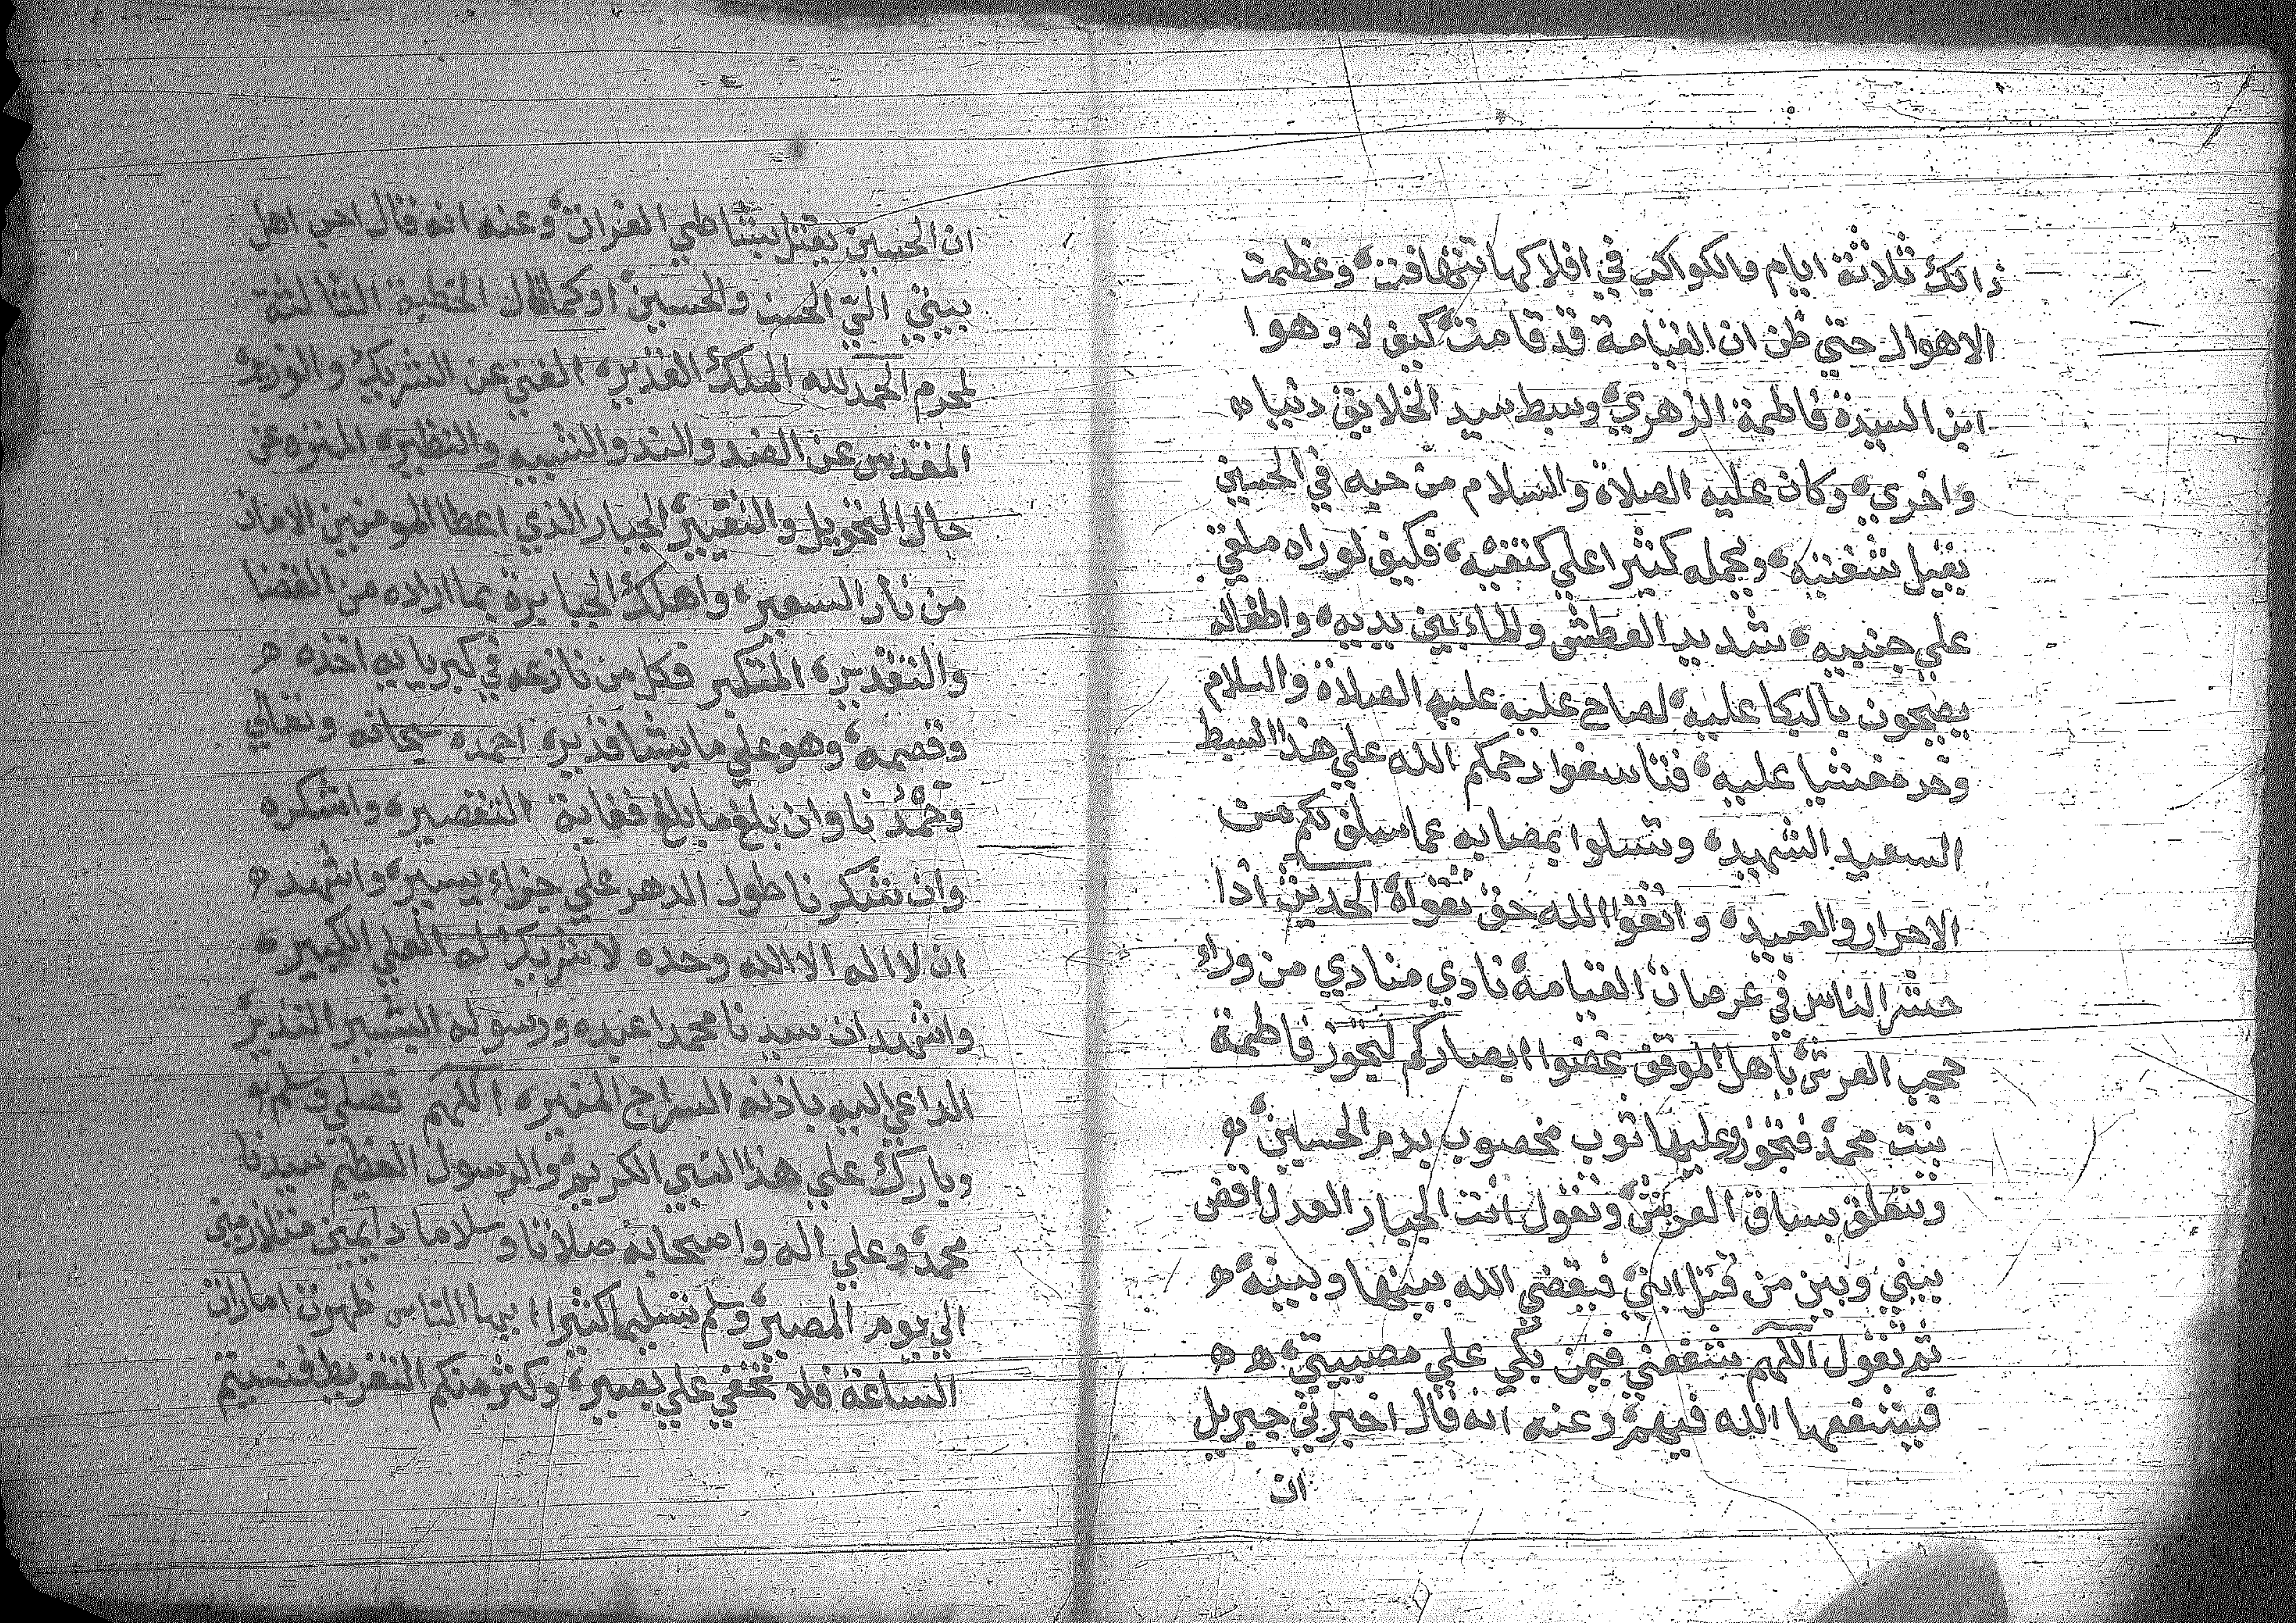 ذالك ثلاثة ايام والكواكب في افلاكها تتهافت وعظمت
الاهوال حتي ظن ان القيامة قد قامت كيف لا وهوا
ابن السيدة فاطمة الزهري وسبط سيد الخلايق دنيا ه
واخري وكان عليه الصلاة والسلام من حبه في الحسين
يقبل شفتيه ويحمله كثيرا علي كتفيه فكيف لو راه ملقي
علي جنبيه شديد العطش والماء بين يديه واطفاله
يضجون بالبكا عليه لصاح عليه عليه الصلاة والسلام
وخر مغشيا عليه فتاسفوا رحمكم الله علي هذا السبط
السعيد الشهيد وتسلوا بمصابه عما سلف لكم من
الاحرار والعبيد واتقوا الله حق تقواه الحديث اذا
حشر الناس في عرصات القيامة نادي منادي من وراء
حجب العرش يا اهل الموقف غضوا ابصاركم لتجوز فاطمة
بنت محمد فتجوز وعليها ثوب مخصوب بدم الحسين ه
وتتعلق بساق العرش وتقول انت الجبار العدل اقض
بيني وبين من قتل ابني فيقضي الله بينها وبينه ه
ثم تقول اللهم شفعني فيمن بكي علي مصيبتي ه ه
فيشفعها الله فيهم وعنه انه قال اخبرني جبريل
ان
ان الحسين يقتل بشاطي الفرات وعنه انه قال احب اهل
بيتي الي الحسن والحسين اوكما قال الخطبة الثالثة
لمحرم الحمد لله الملك القدير الغني عن الشريك والوزير
المقدس عن الضد والند والشبيه والنظير المنزه عن
حال التحويل والتغيير الجبار الذي اعطا المومنين الامان
من نار السعير واهلك الجبابرة بما اراده من القضا
والتقدير المتكبر فكل من نازعه في كبريايه اخذه ه
وقصمه وهو علي ما يشا قدير احمده سبحانه وتعالي
وحمدنا وان بلغ ما بلغ فغاية التقصير واشكره
وان شكرنا طول الدهر علي جزاء يسير واشهد ه
ان لا اله الا الله وحده لا شريك له العلي الكبير
واشهد ان سيدنا محمدا عبده ورسوله البشير النذير
الداعي اليه باذنه السراج المنير اللهم فصلي وسلم و
وبارك علي هذا النبي الكريم والرسول العظيم سيدنا
محمد وعلي اله واصحابه صلاتا وسلاما دايمين متلازمين
الي يوم المصير وسلم تسليما كثيرا ايها الناس ظهرت امارات
الساعة فلا تخفي علي بصير وكثر منكم التفريط فنسيتم